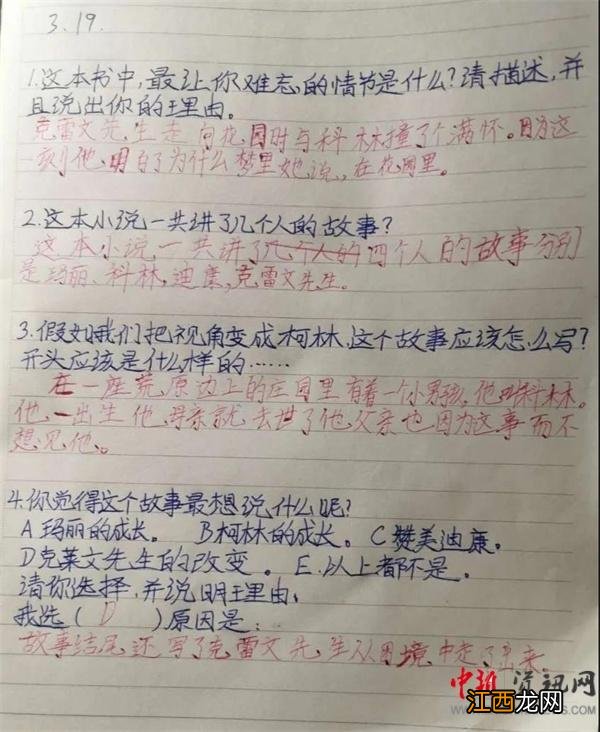 3.19.
1.这本书中,最让你难忘的情节是什么?请描述,并
且说出你的理由。
克雷文先生走向花园时与科林撞了个满怀。因为这
一刻他,明白了为什么梦里她说,在花园里。
2.这本小说一共讲了几个人的故事?
这本小说,一共讲了几个人的四个人的故事分别
是玛丽、科林,迪康,克雷文先生。
3.假如我们把视角变成柯林,这个故事应该怎么写?
开头应该是什么样的……
在一座荒原边上的庄园里有着一个小男孩,他叫科林。
他,一出生他,母亲就去世了他,父亲也因为这事而不
想见他。
4.你觉得这个故事最想说什么呢?
A玛丽的成长。 B柯林的成长。 C赞美迪康。
D克莱文先生的改变。 E.以上都不是。
请你选择,并说明理由,
我选( D )原因是:
故事结尾还写了克雷文先生从困境中走了出来。
中新资讯网
江西龙网